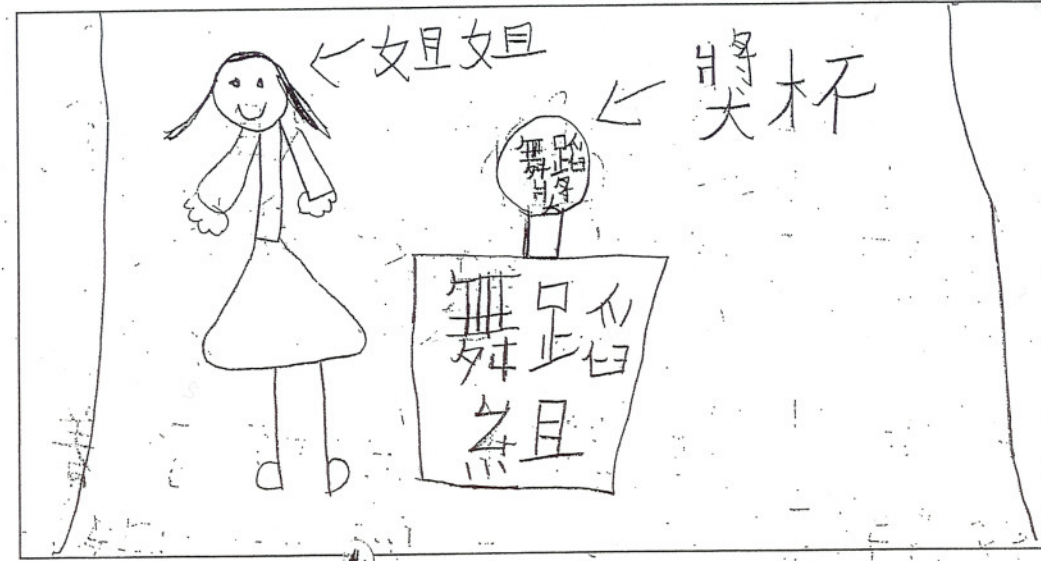 姐姐
獎杯
舞蹈
獎
舞蹈
組